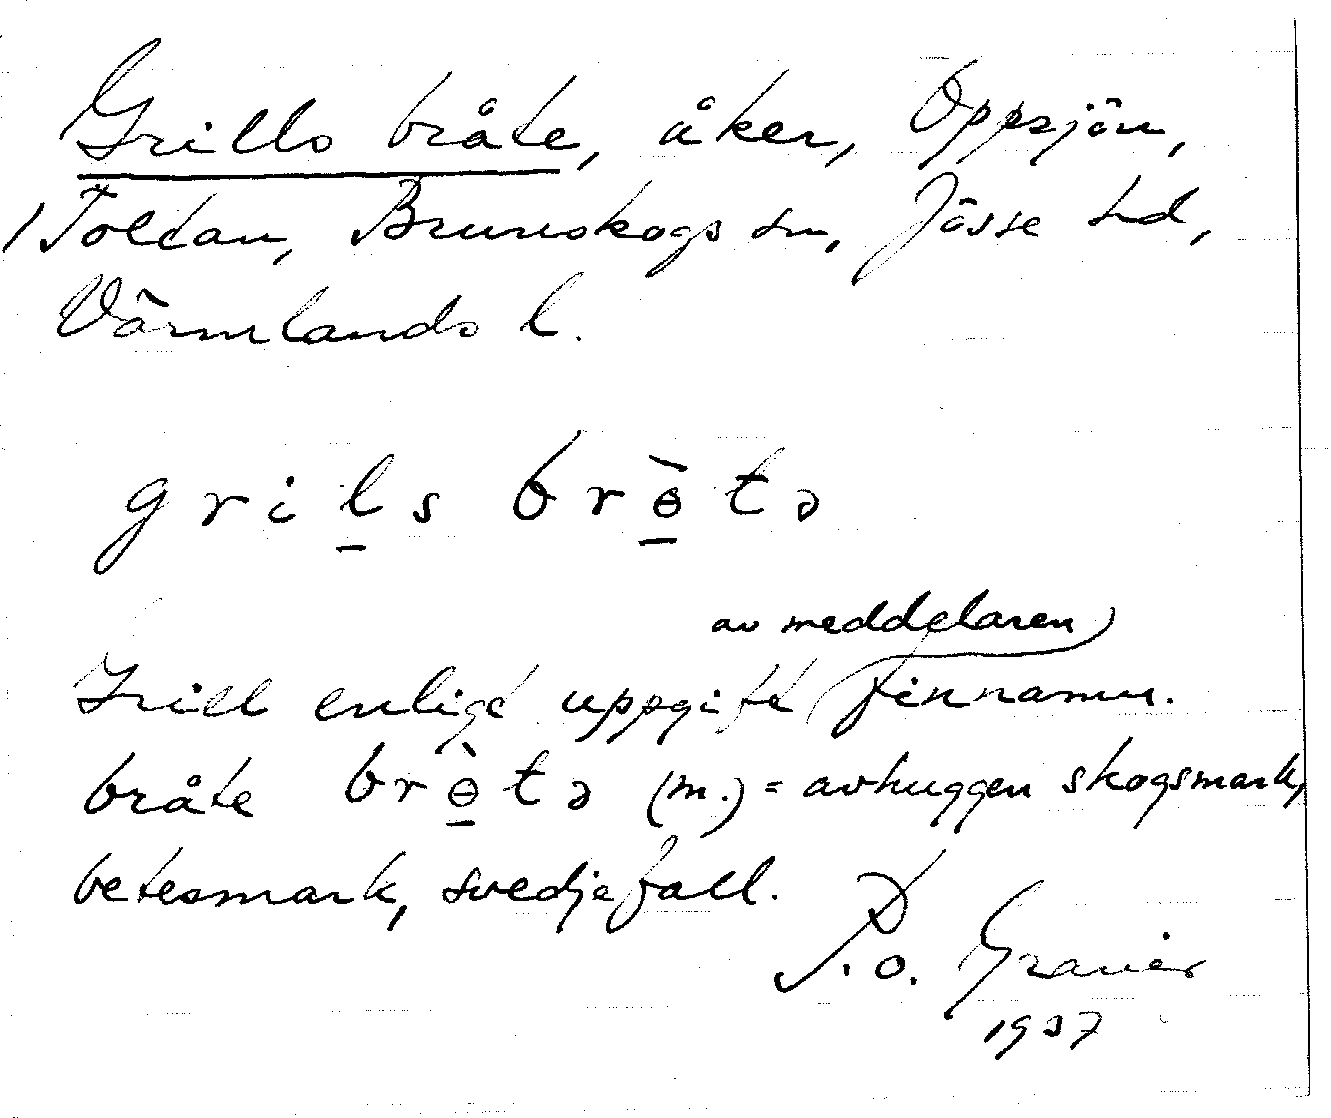 Grills bråte, åker, Oppsjön,
/ Toltan, Brunskogs sn, Jösse hd,
Värmlands l.
g r i l̠ s b r ɵ̠̀ t ə
av meddelaren
Grill enligt uppgift finnamn.
bråte b r ɵ̠̀ t ə (m.) = avhuggen skogsmark,
betesmark, svedjefall.
P. O. Granér
1937